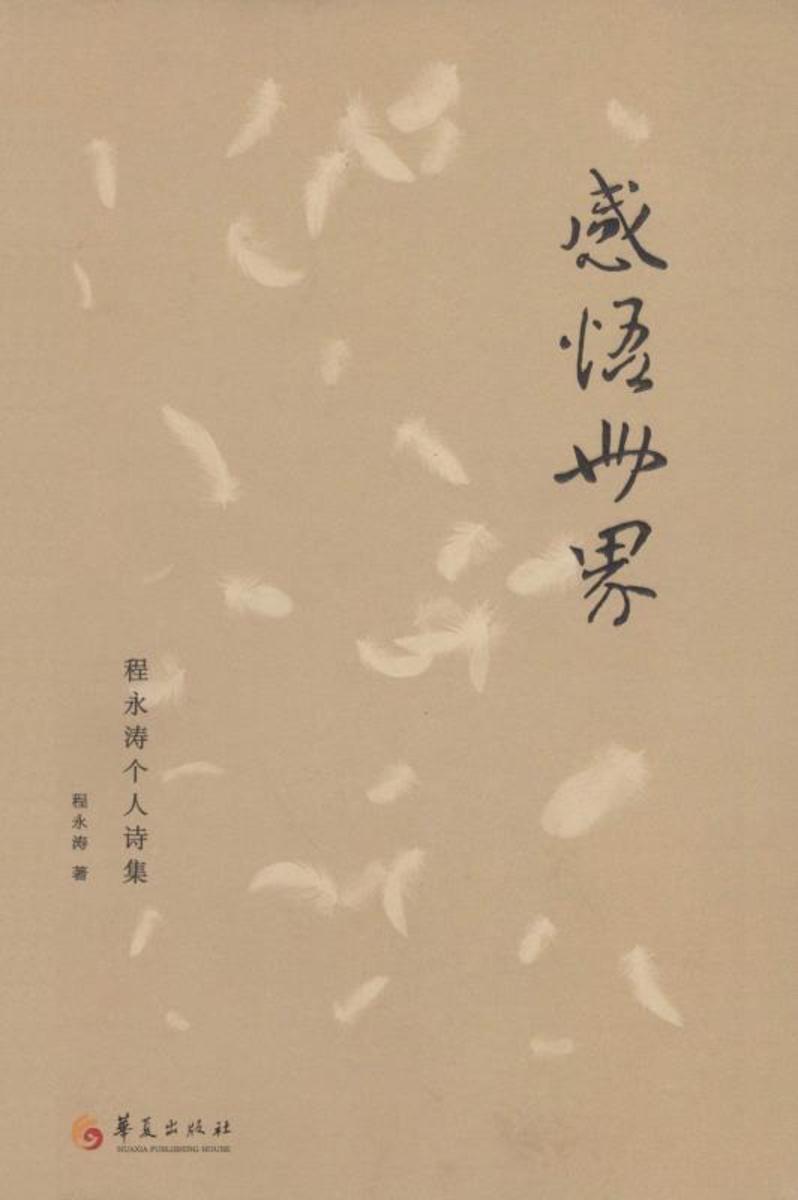 感悟世界
程永涛个人诗集
程永涛 著
華夏出版社
HUAXIA PUBLISHING HOUSE